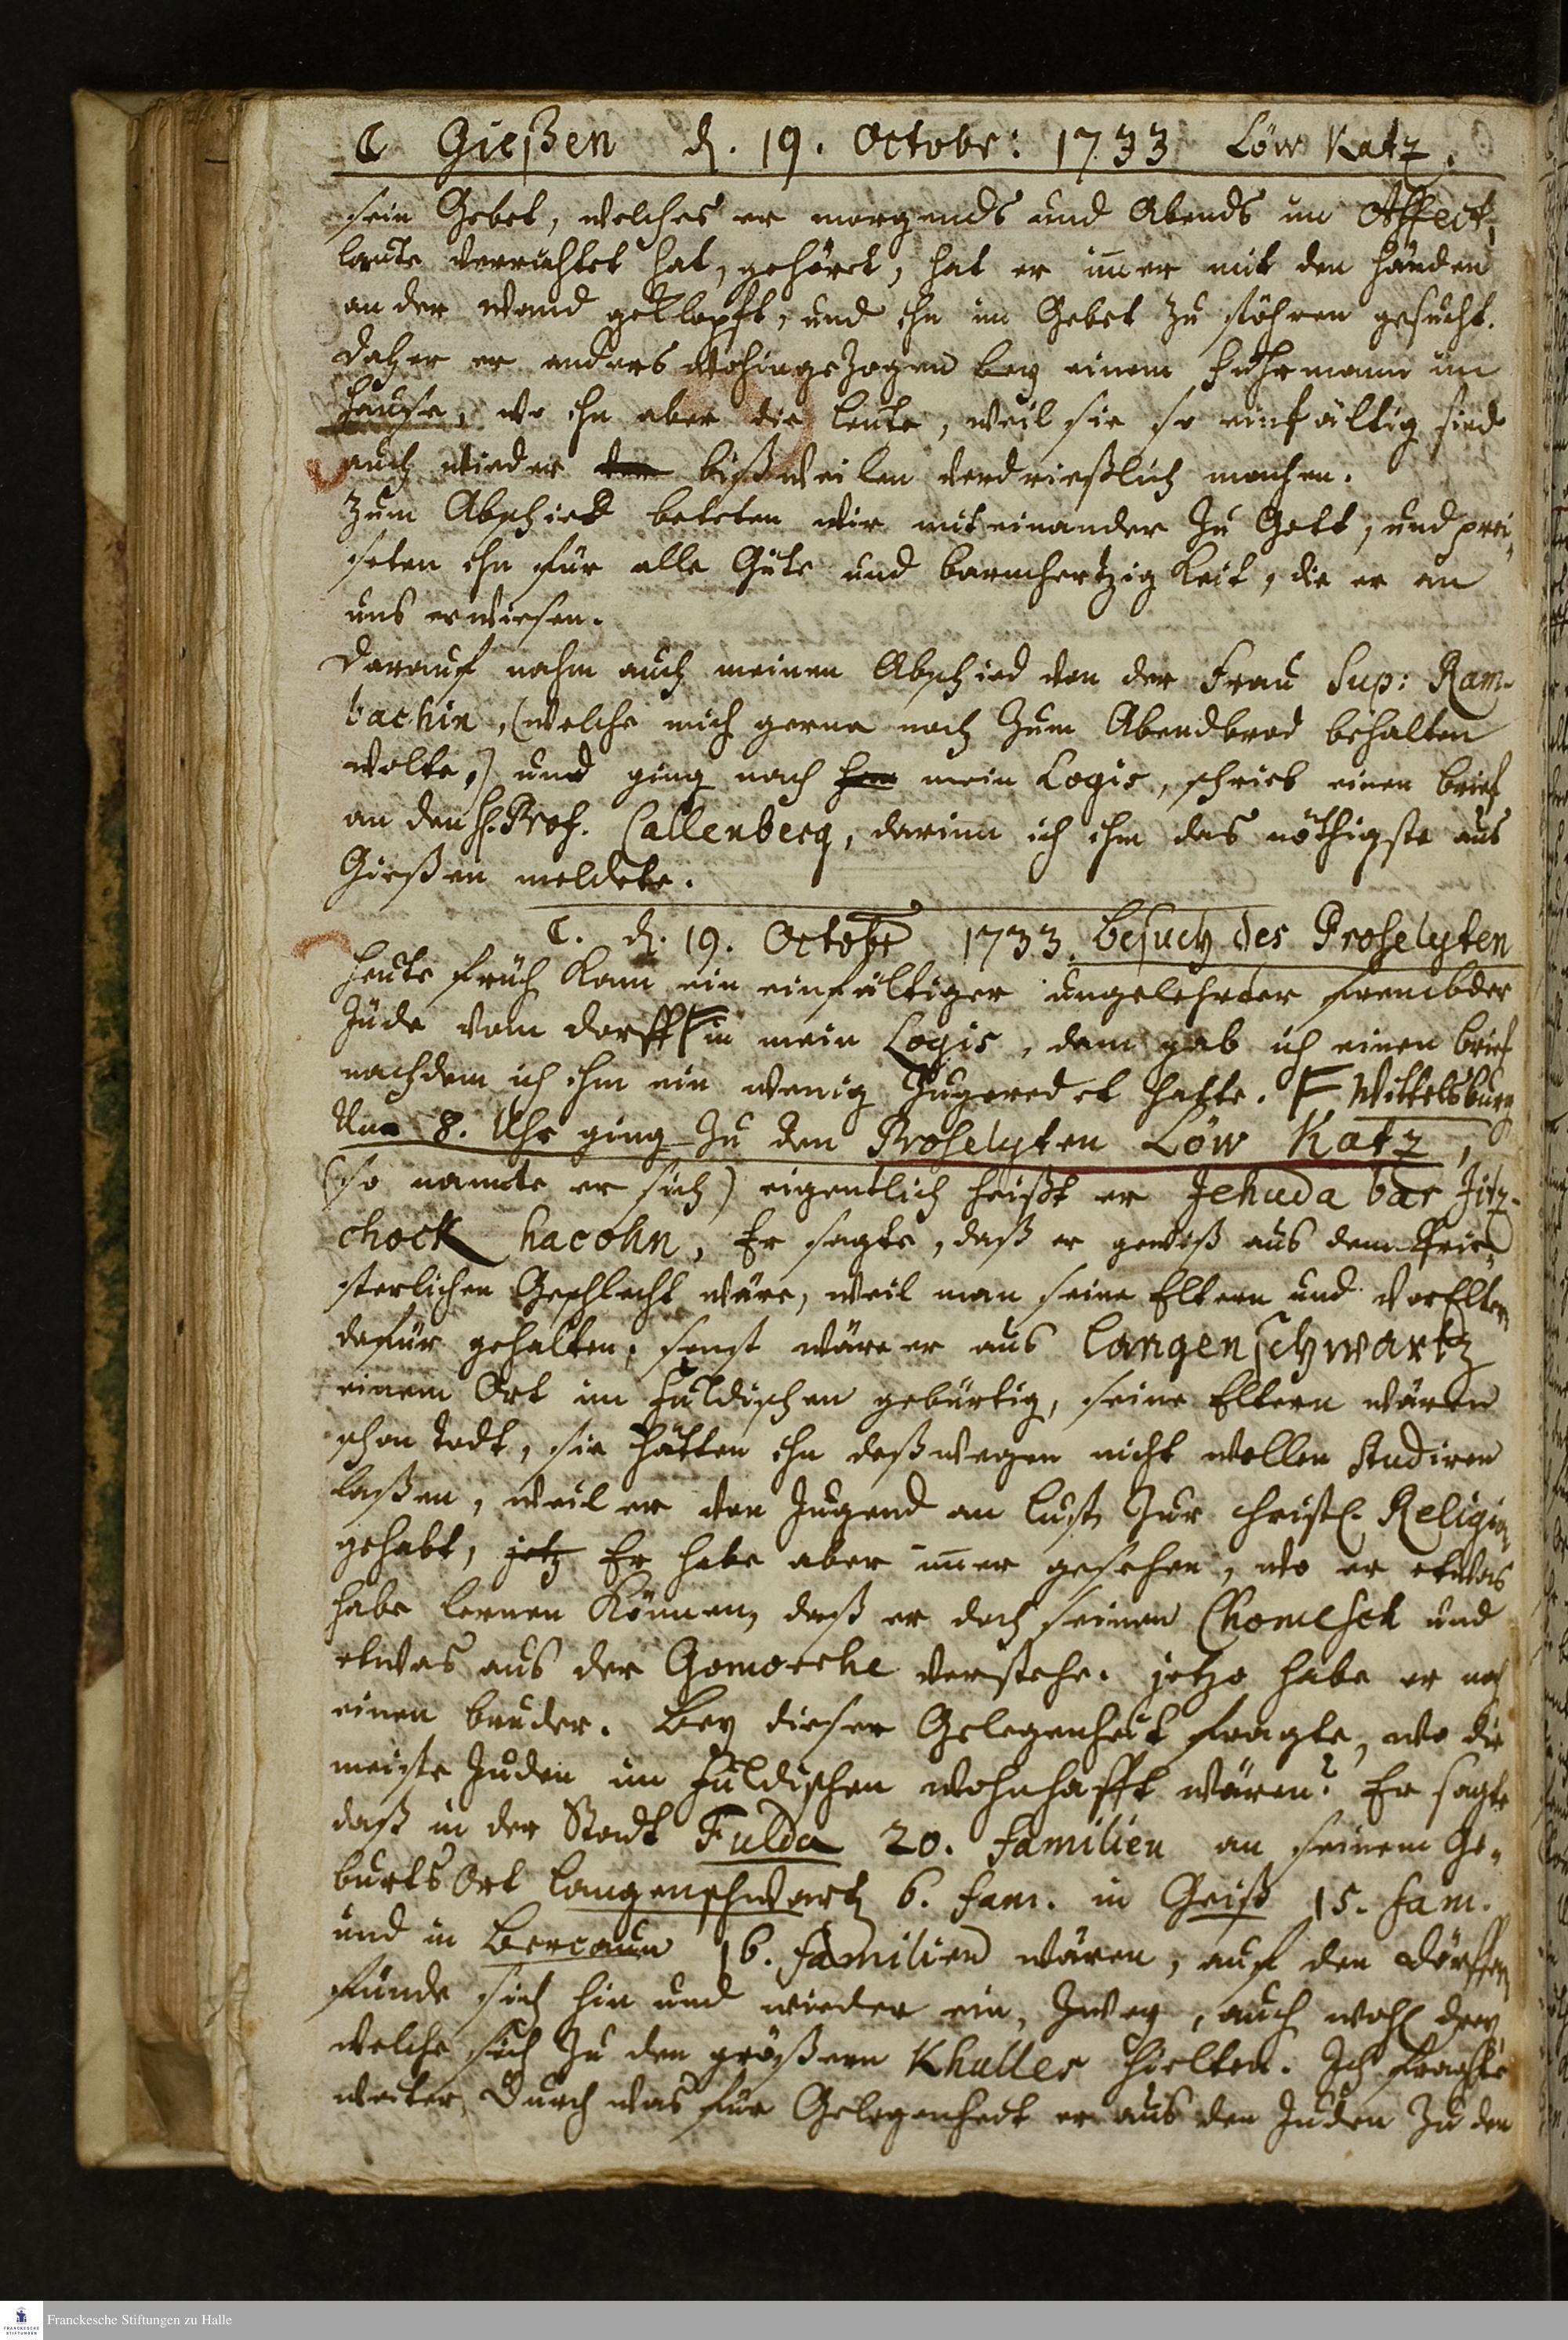 ☾ Gießen d. 19. Octobr: 1733 Löw Katz.
sein Gebet, welches er morgends und Abends im Affect,
laute verrichtet hat, gehöret, hat er im̄er mit den händen
an der wand geklopft, und ihn im Gebet zu stöhren gesucht.
daher er anders wohingezogen bey einem fuhrmann im
hause, wo ihn aber die leute, weil sie so einfältig sind
auch wieder bißweilen verdrießlich machen.
Zum Abschied beteten wir mit einander zu Gott, und prei-
seten ihn für alle Güte und barmhertzigkeit, die er an
uns erwiesen.
Darauf nahm auch meinen Abschied von der Frau Sup: Ram-
bachin, (welche mich gerne noch zum Abendbrod behalten
wolte,) und ging nach mein Logis, schrieb einen brief
an den H. Prof. Callenberg, darinn ich ihm das nöthigste aus
Gießen meldete.
☾. d. 19. Octobr 1733. Besuch des Proselyten
Heute früh kam ein einfältiger ungelehrter frembder
Jude vom dorff F in mein Logis, dem gab ich einen brief
nachdem ich ihm ein wenig zugeredet hatte. F Wittelsburg
Um 8. Uhr ging zu dem Proselyten Löw Katz,
(so nannte er sich) eigentlich heißt er Jehuda bar Jitz-
chock hacohn, Er sagte, daß er gewiß aus dem Prie-
sterlichen Geschlecht wäre, weil man seine Eltern und VorEltern
dafür gehalten; sonst wäre er aus Langenschwartz
einem Ort im Fuldischen gebürtig, seine Eltern wären
schon todt, sie hätten ihn deßwegen nicht wollen studiren
laßen, weil er von Jugend an lust zur christl. Religion
gehabt, jetz Er habe aber im̄er gesehen, wo er etwas
habe lernen können, daß er doch seinen Chomesch und
etwas aus der Gomorche verstehe. jetzo habe er noch
einen bruder. Bey dieser Gelegenheit fragte, wo die
meiste Juden im Fuldischen wohnhafft wären? Er sagte
daß in der Stadt Fulda 20. familien an seinem Ge-
burts Ort Langenschwartz 6. fam. in Geiß 15. fam.
und in Bercaun 16. familien wären, auf den Dörffern
fünde sich hin und wieder ein, Zwey, auch wohl drey
welche sich zu den größern Khulles hielten. Ich fragte
weiter, Durch was für Gelegenheit er aus den Juden zu den
Franckesche Stiftungen zu Halle
FRANCKESCHE
STIFTUNGEN